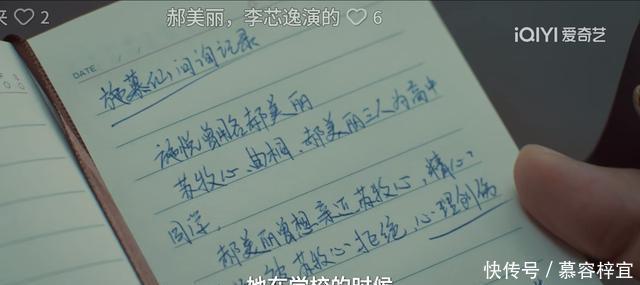 来 2
郝美丽，李芯逸演的 6
iQIYI 爱奇艺
DATE
施慕仙问询记录
施悦曾用名郝美丽
苏牧心、曲桐、郝美丽三人为高中
同学.
郝美丽曾想亲近苏牧心，精心
被苏牧心拒绝，心理创伤
她在学校的时候
快传号／慕容梓宜